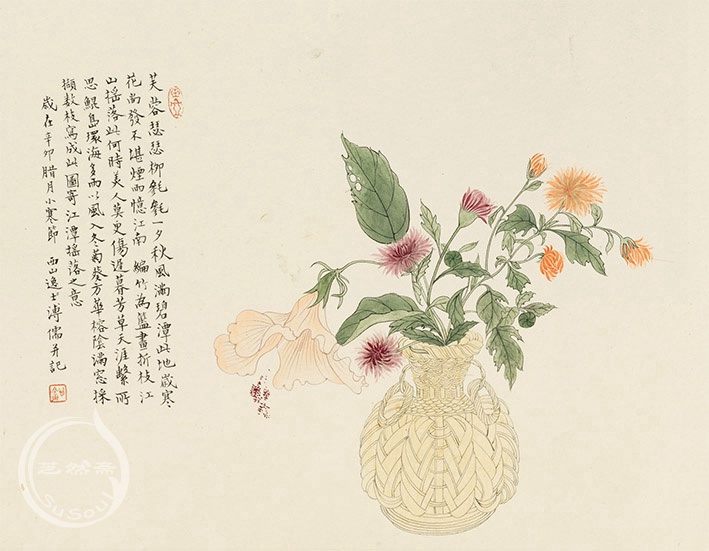 芙蓉瑟瑟柳毿毿一夕秋風滿碧潭此地歲寒
花尚發不堪煙雨憶江南 編竹為籃畫折枝江
山搖落此何時美人莫更傷遲暮芳草天涯繫所
思 鯤島環海多雨以風入冬菊葵方華榕陰滿窓採
擷數枝寫成此圖寄江潭搖落之意
歲在辛卯腊月小寒節 西山逸士溥儒并記
SuSoul